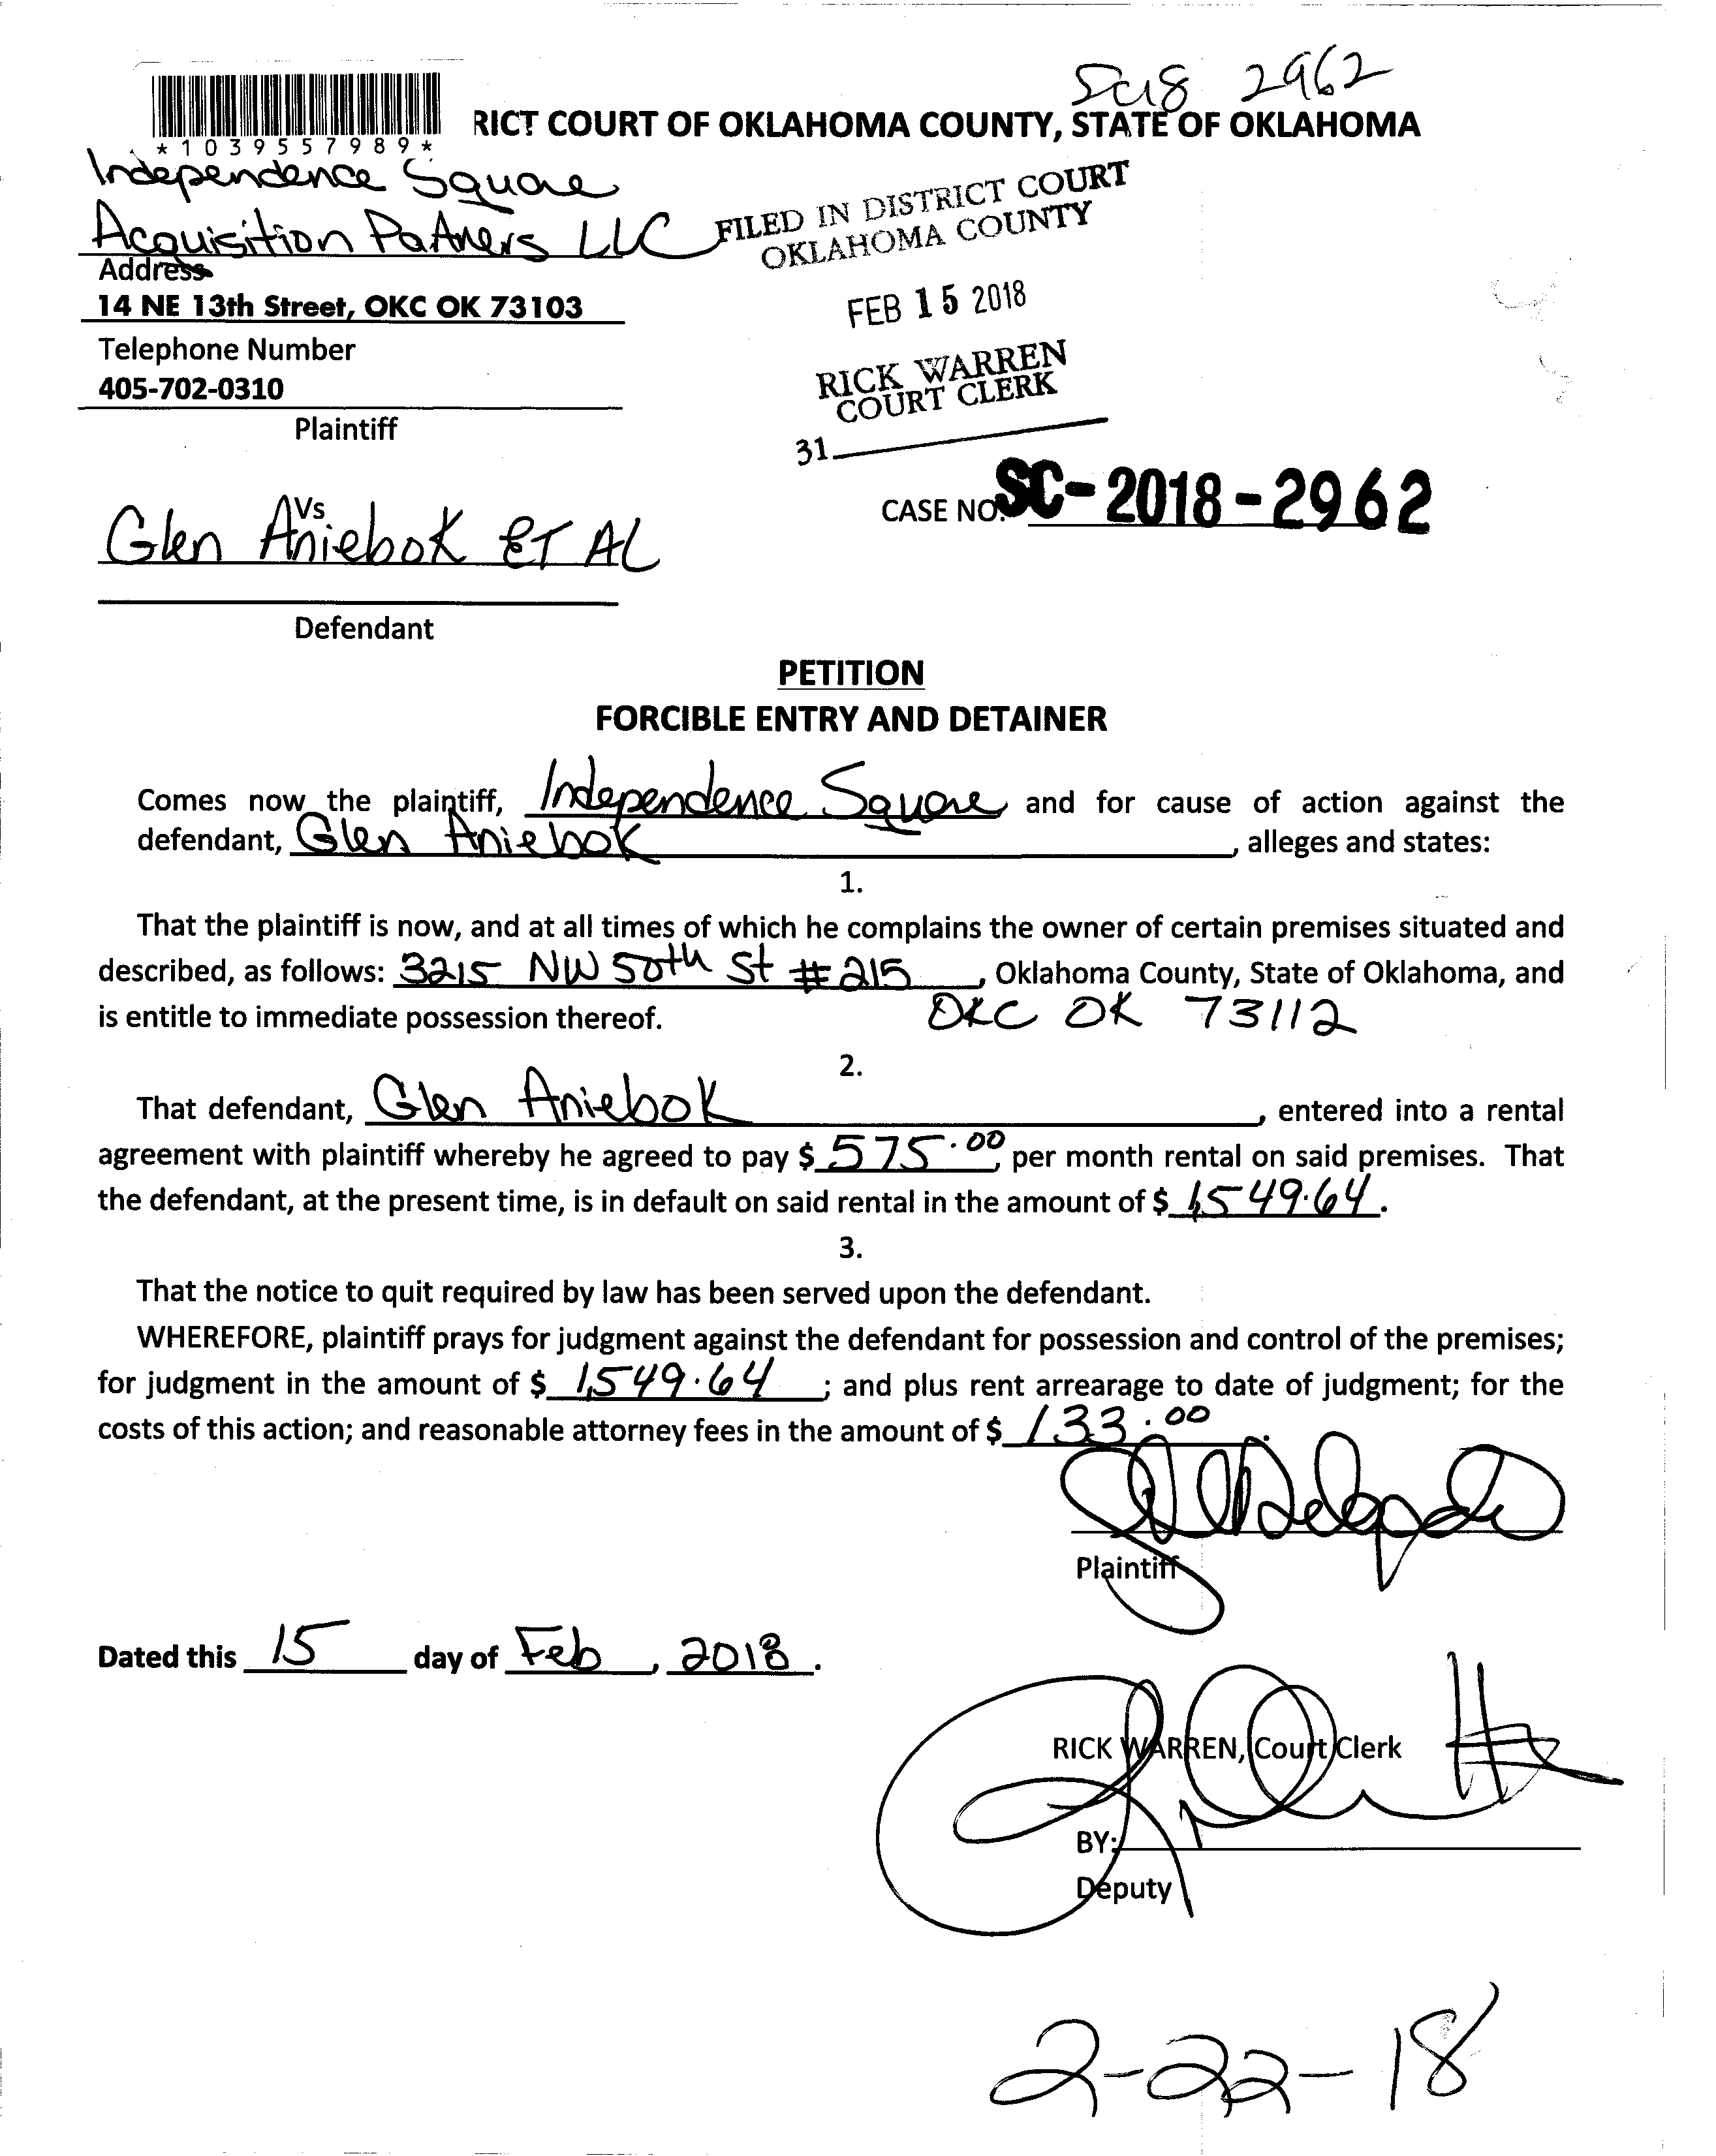 Sc18 2962
RICT COURT OF OKLAHOMA COUNTY, STATE OF OKLAHOMA
*1039557989*
Independence Square
Acquisition Patners LLC
Address
14 NE 13th Street, OKC OK 73103
Telephone Number
405-702-0310
Plaintiff
FILED IN DISTRICT COURT
OKLAHOMA COUNTY
FEB 15 2018
RICK WARREN
COURT CLERK
31
CASE NO. SC-2018-2962
Vs
Glen Aniebok ET AL
Defendant
PETITION
FORCIBLE ENTRY AND DETAINER
Comes now the plaintiff, Independence Square and for cause of action against the
defendant, Glen Aniebok, alleges and states:
1.
That the plaintiff is now, and at all times of which he complains the owner of certain premises situated and
described, as follows: 3215 NW 50th St #215, Oklahoma County, State of Oklahoma, and
is entitle to immediate possession thereof. OKC OK 73112
2.
That defendant, Glen Aniebok, entered into a rental
agreement with plaintiff whereby he agreed to pay $ 575.00, per month rental on said premises. That
the defendant, at the present time, is in default on said rental in the amount of $ 1,549.64.
3.
That the notice to quit required by law has been served upon the defendant.
WHEREFORE, plaintiff prays for judgment against the defendant for possession and control of the premises;
for judgment in the amount of $ 1,549.64; and plus rent arrearage to date of judgment; for the
costs of this action; and reasonable attorney fees in the amount of $ 133.00.
Plaintiff
Dated this 15 day of Feb, 2018.
RICK WARREN, Court Clerk
BY:
Deputy
2-22-18